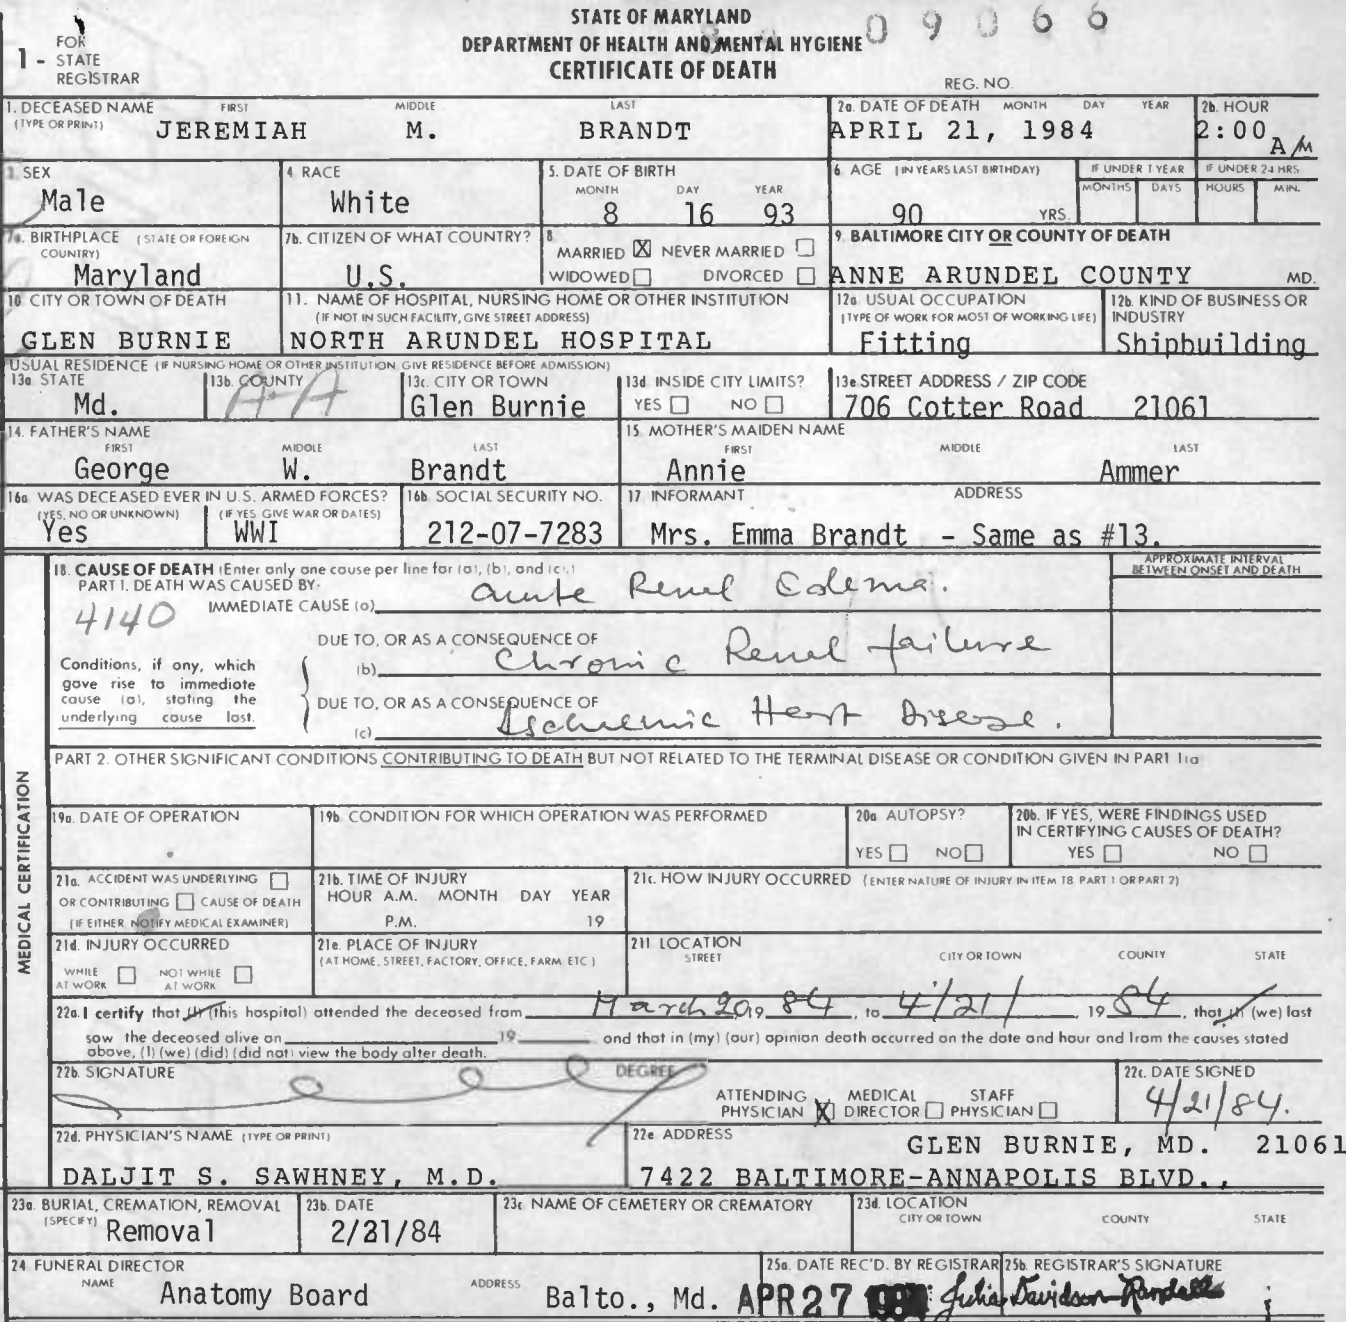 STATE OF MARYLAND
DEPARTMENT OF HEALTH AND MENTAL HYGIENE
CERTIFICATE OF DEATH
09066
1 - FOR STATE REGISTRAR
REG. NO.
1. DECEASED NAME (TYPE OR PRINT) FIRST MIDDLE LAST
JEREMIAH M. BRANDT
2a. DATE OF DEATH MONTH DAY YEAR
APRIL 21, 1984
2b. HOUR
2:00 A M
3. SEX
Male
4. RACE
White
5. DATE OF BIRTH
MONTH DAY YEAR
8 16 93
6. AGE (IN YEARS LAST BIRTHDAY)
90 YRS.
IF UNDER 1 YEAR
MONTHS DAYS
IF UNDER 24 HRS
HOURS MIN.
7a. BIRTHPLACE (STATE OR FOREIGN COUNTRY)
Maryland
7b. CITIZEN OF WHAT COUNTRY?
U.S.
8. MARRIED ☒ NEVER MARRIED ☐
WIDOWED ☐ DIVORCED ☐
9. BALTIMORE CITY OR COUNTY OF DEATH
ANNE ARUNDEL COUNTY MD.
10. CITY OR TOWN OF DEATH
GLEN BURNIE
11. NAME OF HOSPITAL, NURSING HOME OR OTHER INSTITUTION
(IF NOT IN SUCH FACILITY, GIVE STREET ADDRESS)
NORTH ARUNDEL HOSPITAL
12a. USUAL OCCUPATION
(TYPE OF WORK FOR MOST OF WORKING LIFE)
Fitting
12b. KIND OF BUSINESS OR INDUSTRY
Shipbuilding
USUAL RESIDENCE (IF NURSING HOME OR OTHER INSTITUTION GIVE RESIDENCE BEFORE ADMISSION)
13a. STATE
Md.
13b. COUNTY
A-A
13c. CITY OR TOWN
Glen Burnie
13d. INSIDE CITY LIMITS?
YES ☐ NO ☐
13e STREET ADDRESS / ZIP CODE
706 Cotter Road 21061
14. FATHER'S NAME
FIRST MIDDLE LAST
George W. Brandt
15. MOTHER'S MAIDEN NAME
FIRST MIDDLE LAST
Annie Ammer
16a. WAS DECEASED EVER IN U.S. ARMED FORCES?
(YES, NO OR UNKNOWN) (IF YES, GIVE WAR OR DATES)
Yes WWI
16b. SOCIAL SECURITY NO.
212-07-7283
17. INFORMANT ADDRESS
Mrs. Emma Brandt - Same as #13.
18. CAUSE OF DEATH (Enter only one cause per line for (a), (b), and (c).)
APPROXIMATE INTERVAL BETWEEN ONSET AND DEATH
PART 1. DEATH WAS CAUSED BY:
4140
IMMEDIATE CAUSE (a) acute Renal Edema.
DUE TO, OR AS A CONSEQUENCE OF
(b) Chronic Renal failure
Conditions, if any, which gave rise to immediate cause (a), stating the underlying cause last.
DUE TO, OR AS A CONSEQUENCE OF
(c) Ischemic Heart Disease.
PART 2. OTHER SIGNIFICANT CONDITIONS CONTRIBUTING TO DEATH BUT NOT RELATED TO THE TERMINAL DISEASE OR CONDITION GIVEN IN PART 1(a
MEDICAL CERTIFICATION
19a. DATE OF OPERATION
19b. CONDITION FOR WHICH OPERATION WAS PERFORMED
20a AUTOPSY?
YES ☐ NO ☐
20b. IF YES, WERE FINDINGS USED IN CERTIFYING CAUSES OF DEATH?
YES ☐ NO ☐
21a. ACCIDENT WAS UNDERLYING ☐
OR CONTRIBUTING ☐ CAUSE OF DEATH
(IF EITHER NOTIFY MEDICAL EXAMINER)
21b. TIME OF INJURY
HOUR A.M. MONTH DAY YEAR
P.M. 19
21c. HOW INJURY OCCURRED (ENTER NATURE OF INJURY IN ITEM 18 PART 1 OR PART 2)
21d. INJURY OCCURRED
WHILE AT WORK ☐ NOT WHILE AT WORK ☐
21e. PLACE OF INJURY
(AT HOME, STREET, FACTORY, OFFICE, FARM, ETC.)
21f LOCATION
STREET CITY OR TOWN COUNTY STATE
22a. I certify that (I) (this hospital) attended the deceased from March 20, 19 84, to 4/21/ 19 84, that (I) (we) last
saw the deceased alive on 19 and that in (my) (our) opinion death occurred on the date and hour and from the causes stated
above, (I) (we) (did) (did not) view the body after death.
22b. SIGNATURE DEGREE
ATTENDING PHYSICIAN ☒ MEDICAL DIRECTOR ☐ STAFF PHYSICIAN ☐
22c. DATE SIGNED
4/21/84.
22d. PHYSICIAN'S NAME (TYPE OR PRINT)
DALJIT S. SAWHNEY, M.D.
22e ADDRESS
GLEN BURNIE, MD. 21061
7422 BALTIMORE-ANNAPOLIS BLVD.,
23a. BURIAL, CREMATION, REMOVAL (SPECIFY)
Removal
23b. DATE
2/21/84
23c NAME OF CEMETERY OR CREMATORY
23d. LOCATION
CITY OR TOWN COUNTY STATE
24 FUNERAL DIRECTOR
NAME ADDRESS
Anatomy Board Balto., Md.
25a. DATE REC'D. BY REGISTRAR
APR 27
25b. REGISTRAR'S SIGNATURE
Julia Davidson-Randall